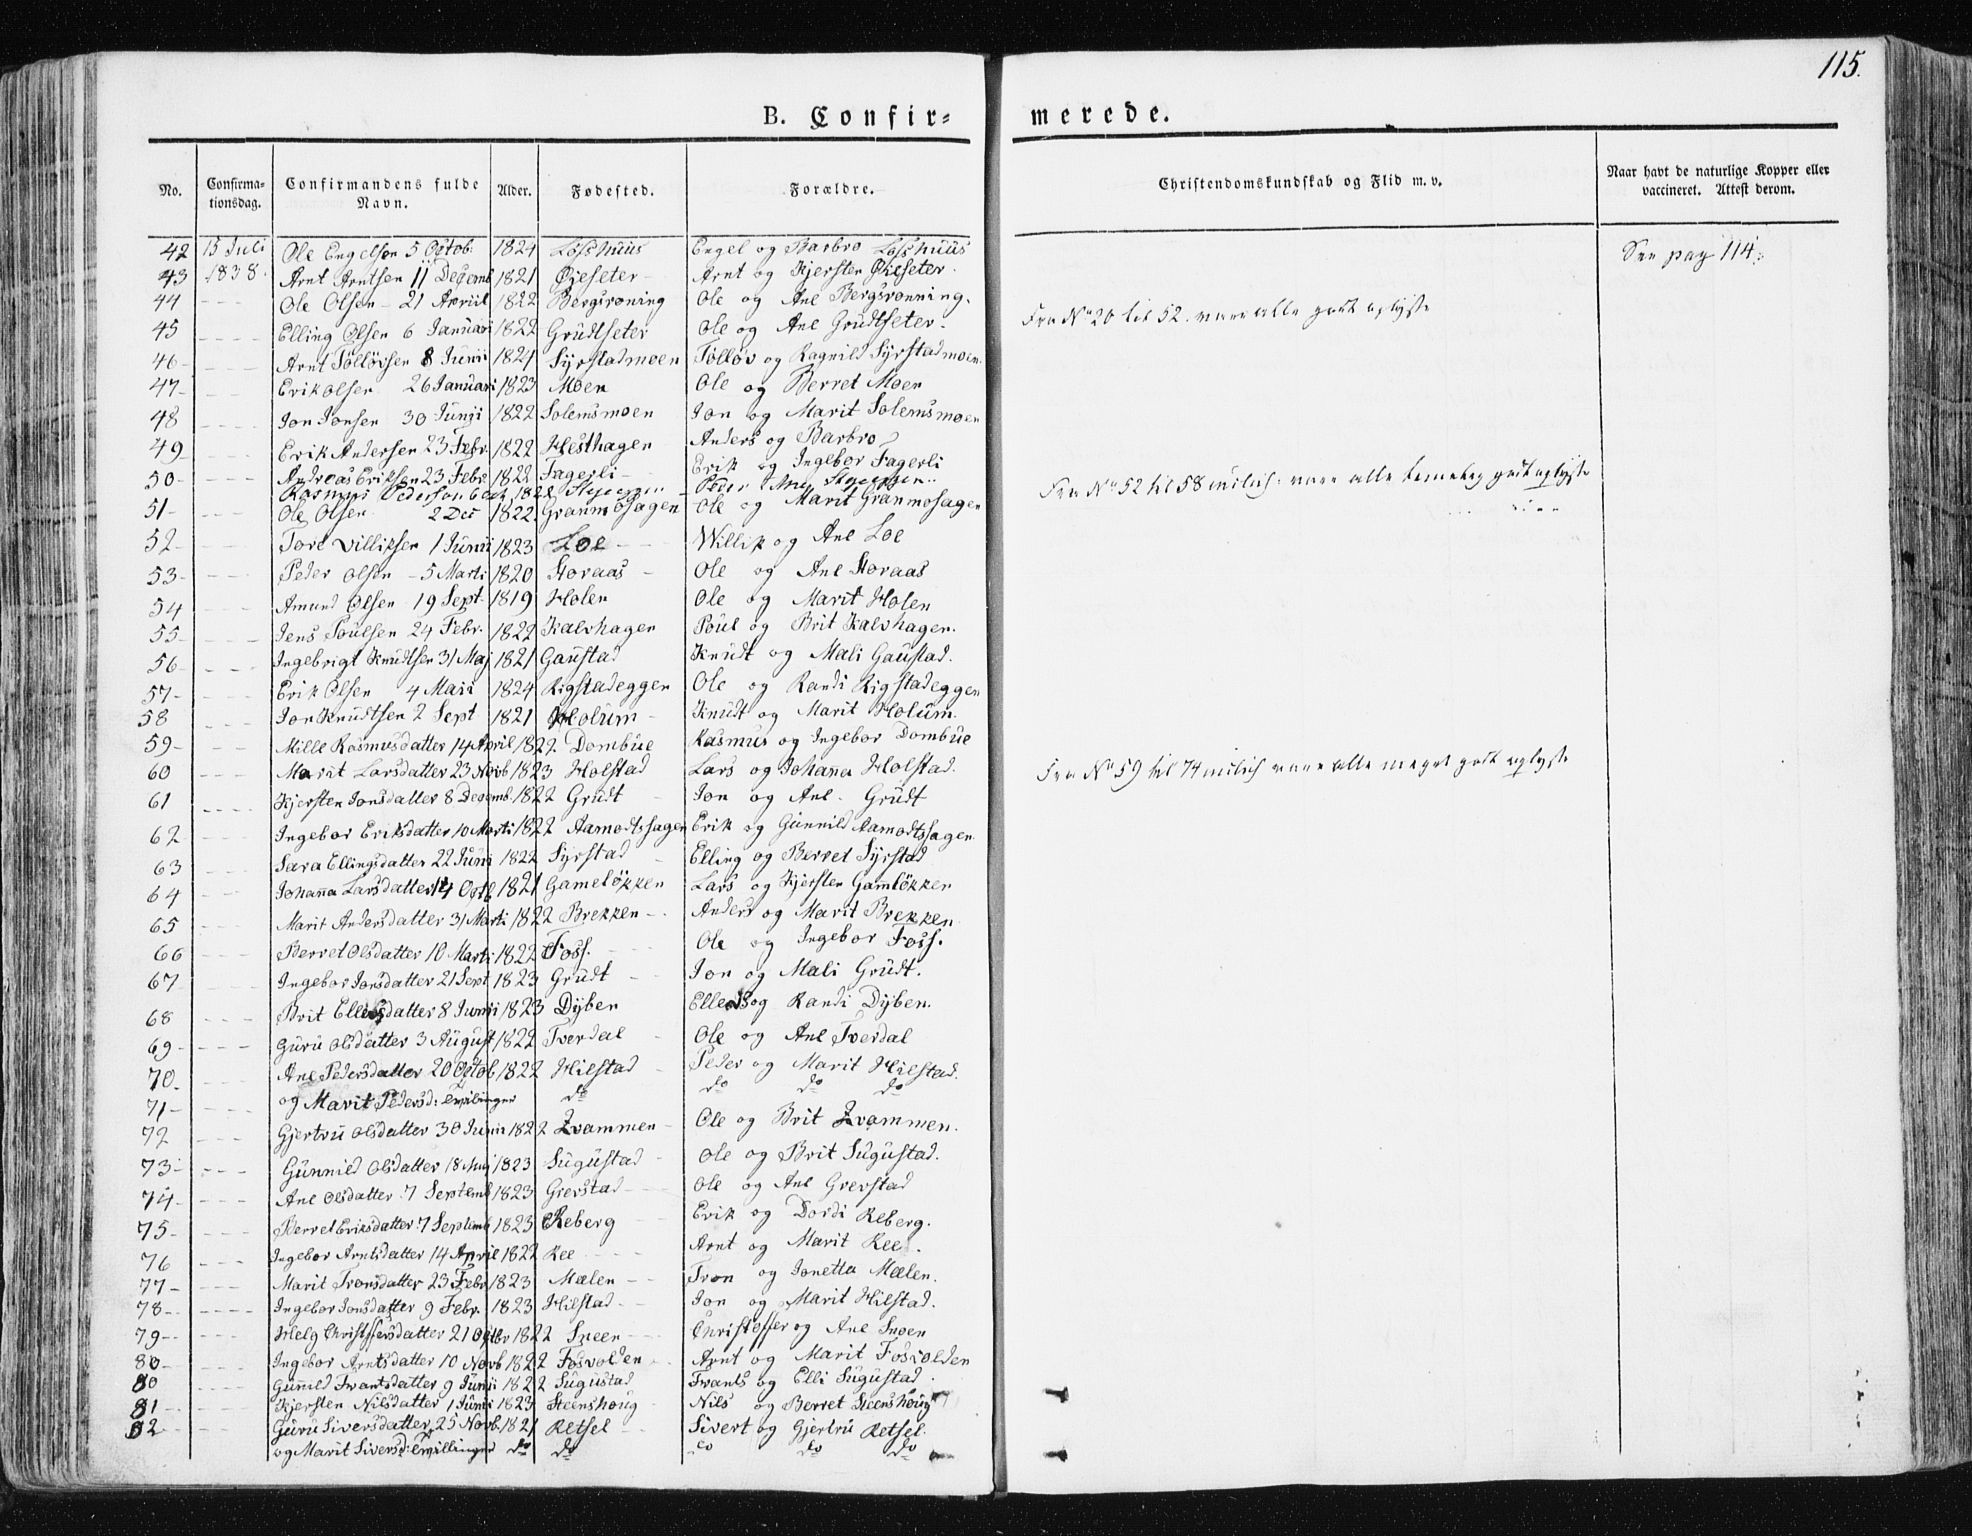 115.
B. Confir-
merede.
No.
Confirma-
tionsdag.
Confirmandens fulde
Navn.
Alder.
Fødested.
Forældre.
Christendomskundskab og Flid m. v.
Naar havt de naturlige Kopper eller
vaccineret. Attest derom.
42 15 Juli Ole Engelsen 5 Octob. 1824 Losshuus Engel og Barbro Losshuus
See pag 114.
43 1838. Arnt Arntsen 11 Decemb 1821 Øieseter Arnt og Kjersten Øieseter.
44 Ole Olsen 21 April 1822 Bergsroning Ole og Ane Bergsrønning.
45 Elling Olsen 6 Januari 1822 Grudtseter Ole og Ane Grudtseter
Fra No 20 til 52. vare alle godt oplyste
46 Arnt Tølløvsen 8 Junii 1824 Syrstadmoen Tølløv og Ragnild Syrstadmoen
47 Erik Olsen 26 Januari 1823 Moen Ole og Berret Moen
48 Jon Jonsen 30 Junji 1822 Solemsmoen Jon og Marit Solemsmoen
49 Erik Andersen 23 Febr. 1822 Hesthagen Anders og Barbro
50 Andreas Eriksen 23 Febr. 1822 Fagerli Erik og Ingebor Fagerli
Rasmus Pederson 6 1822 Peder Ane
Fra No 52 til 58 vare alle temelig godt oplyste
51 Ole Olsen 2 Dec 1822 Granmosagen Ole og Marit Granmosagen
52 Tore Villiksen 1 Junii 1823 Loe Willik og Ane Loe
53 Peder Olsen 5 Marti 1820 Storaas Ole og Ane Storaas
54 Amund Olsen 19 Sept. 1819 Holen Ole og Marit Holen
55 Jens Poulsen 24 Febr. 1822 Kalvhagen Poul og Brit Kalvhagen.
56 Ingebrigt Knudtsen 31 Maj 1821 Gaustad Knudt og Mali Gaustad.
57 Erik Olsen 4 Maii 1824 Rigstadeggen Ole og Randi Rigstadeggen
58 Jon Knudtsen 2 Sept 1821 Holum Knudt og Marit Holum.
59 Mille Rasmusdatter 14 April 1822 Dombue Rasmus og Ingebor Dombue
60 Marit Larsdatter 23 Novb 1823 Holstad Lars og Johanna Holstad.
Fra No 59 til 74 vare alle meget godt oplyste
61 Kjersten Jonsdatter 8 Decemb. 1822 Grudt Jon og Ane Grudt
62 Ingebor Eriksdatter 10 Marti 1822 Aamodtssagen Erik og Gunnild Aamodtssagen
63 Sara Ellingsdatter 22 Juni 1822 Syrstad Elling og Berret Syrstad
64 Johanna Larsdatter 14 Octb 1821 Gameløkken Lars og Kjersten Gamløkken
65 Marit Andersdatter 31 Marti 1822 Brekken Anders og Marit Brekken
66 Berret Olsdatter 10 Marti 1822 Foss. Ole og Ingebor Foss.
67 Ingebor Jonsdatter 21 Sept 1823 Grudt Jon og Mali Grudt.
68 Brit datter 8 Junii 1823 Dyben og Randi Dyben.
69 Guru Olsdatter 3 August 1822 Tverdal Ole og Ane Tverdal
70 Ane Pedersdatter 20 Octob 1822 Hilstad Peder og Marit Hilstad.
71 og Marit Pedersd: tvilinger do do do do
72 Gjertru Olsdatter 30 Junii 1822 Zvammen Ole og Brit Zvammen.
73 Gunnild Olsdatter 18 Maj 1823 Sugustad Ole og Brit Sugustad.
74 Ane Olsdatter 7 Septemb 1823 Grevstad Ole og Ane Grevstad
75 Berret Eriksdatter 7 Septemb 1823 Reberg Erik og Dordi Reberg.
76 Ingebor Arntsdatter 14 April 1822 Ree Arnt og Marit Ree.
77 Marit Tronsdatter 23 Febr 1823 Mælen Tron og Jonetta Mælen.
78 Ingebor Jonsdatter 9 Febr. 1823 Hilstad Jon og Marit Hilstad.
79 Helg Christoffersdatter 21 Octbr 1822 Sneen Christoffer og Ane Snoen
80 Ingebor Arntsdatter 10 Novb 1822 Fosvolden Arnt og Marit Fosvolden
80 Gunnild Frantsdatter 9 Junii 1822 Sugustad Frants og Elli Sugustad
81 Kjersten Nilsdatter 1 Junii 1823 Steenshoug Nils og Berret Steenshoug
82 Guru Siversdatter 25 Novb. 1821 Retsel Sivert og Gjertru Retsel.
og Marit Siversd: tvillinger do do do do do